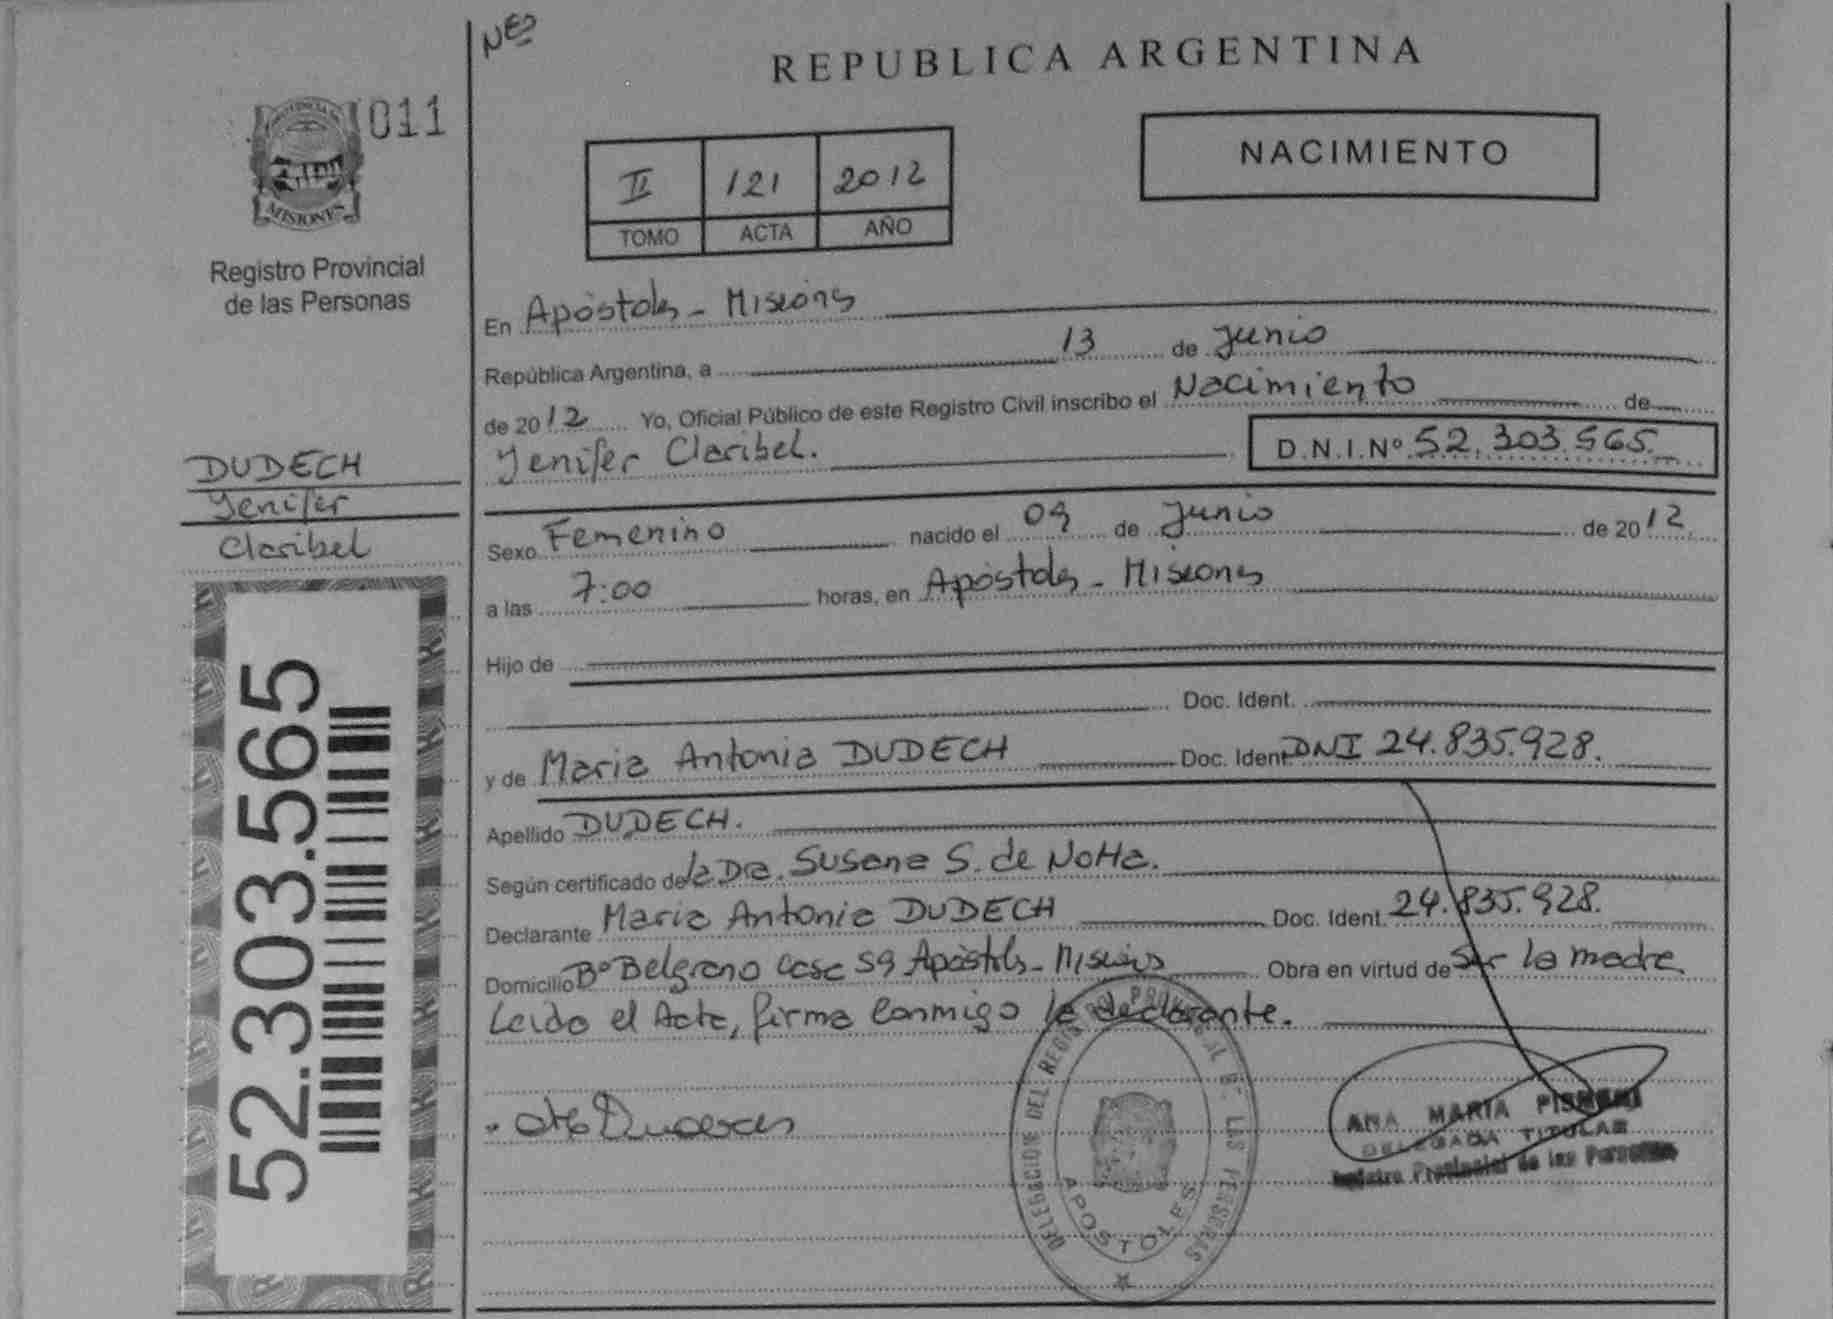 NES
REPUBLICA ARGENTINA
011
NACIMIENTO
II 121 2012
TOMO ACTA AÑO
MISIONES
Registro Provincial
de las Personas
En Apóstoles - Misiones
República Argentina, a 13 de Junio
de 2012 Yo, Oficial Público de este Registro Civil inscribo el Nacimiento de
Yenifer Claribel. D.N.I.Nº 52.303.565
DUDECH
Yenifer
Claribel
Sexo Femenino nacido el 09 de Junio de 2012
a las 7:00 horas, en Apóstoles - Misiones
Hijo de
Doc. Ident.
y de Maria Antonia DUDECH Doc. Ident DNI 24.835.928.
Apellido DUDECH.
Según certificado de la Dra. Susana S. de Notta.
Declarante Maria Antonia DUDECH Doc. Ident. 24.835.928.
Domicilio Bº Belgrano casa 59 Apóstoles - Misiones Obra en virtud de Ser la madre
Leido el Acta, firma conmigo la declarante.
52.303.565
DELEGACION DEL REGISTRO PROVINCIAL DE LAS PERSONAS
APOSTOLES
ANA MARIA
DELEGADA TITULAR
Registro Provincial de las Personas